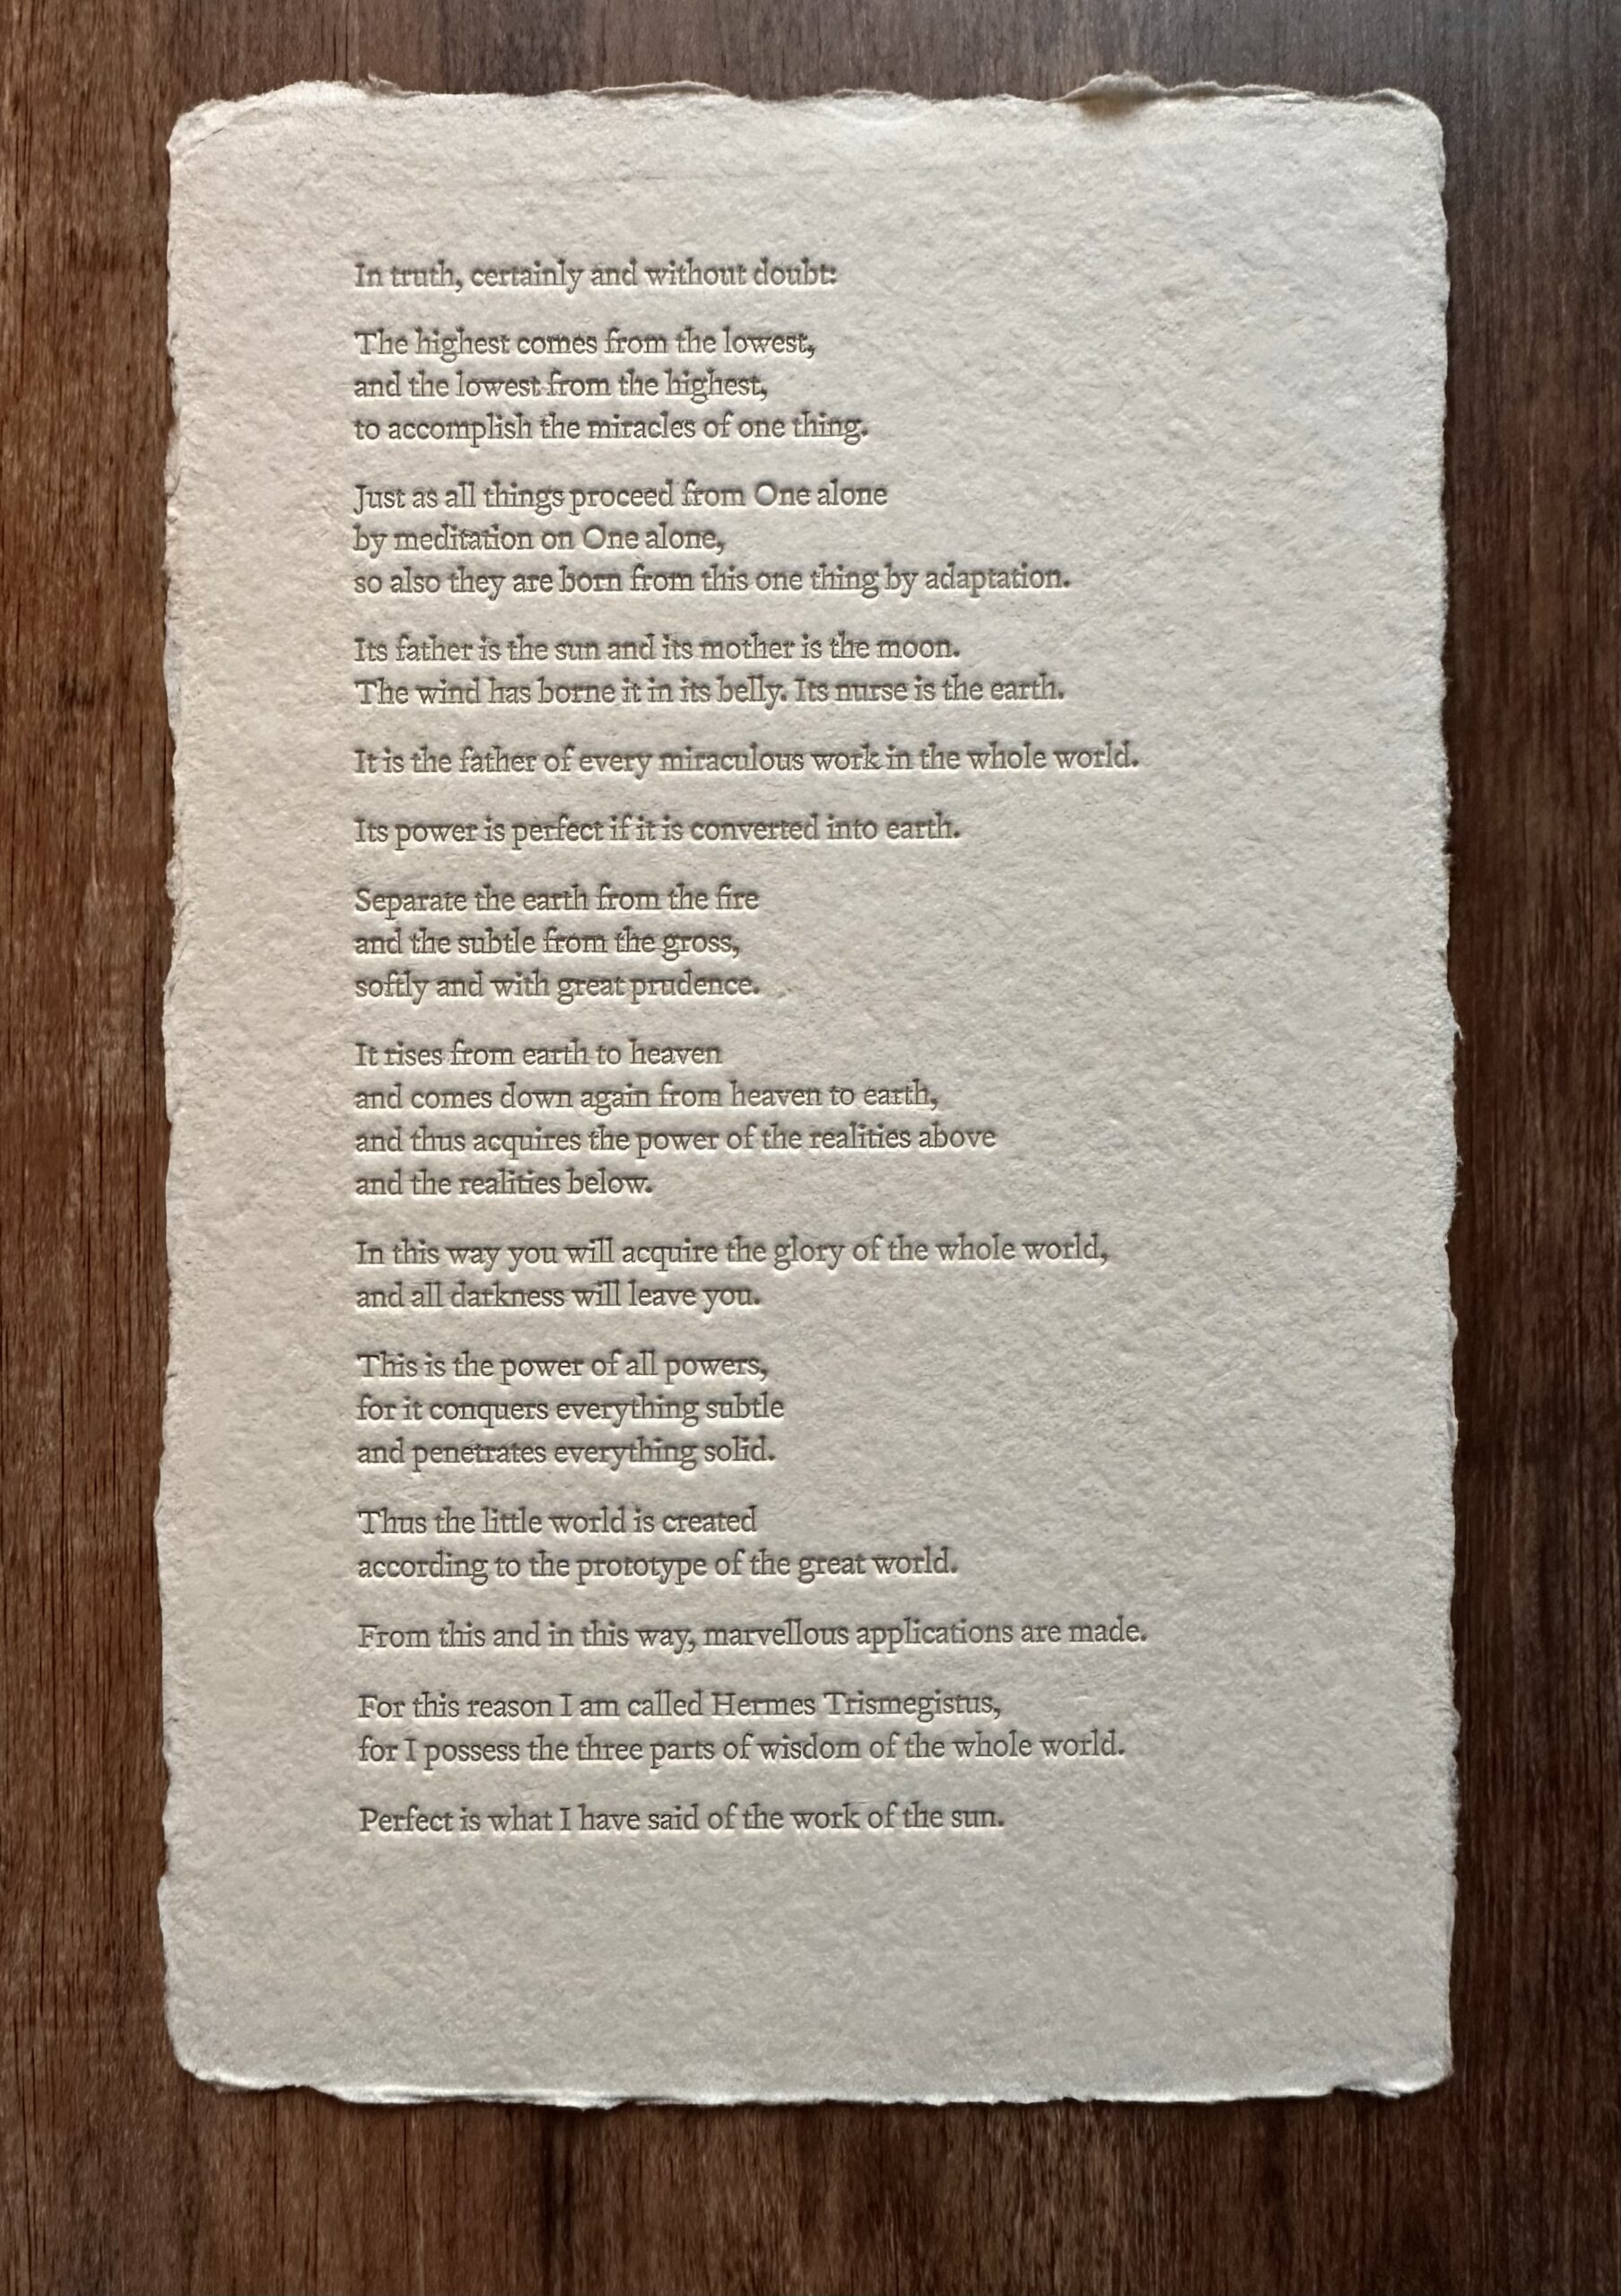 In truth, certainly and without doubt:
The highest comes from the lowest,
and the lowest from the highest,
to accomplish the miracles of one thing.
Just as all things proceed from One alone
by meditation on One alone,
so also they are born from this one thing by adaptation.
Its father is the sun and its mother is the moon.
The wind has borne it in its belly. Its nurse is the earth.
It is the father of every miraculous work in the whole world.
Its power is perfect if it is converted into earth.
Separate the earth from the fire
and the subtle from the gross,
softly and with great prudence.
It rises from earth to heaven
and comes down again from heaven to earth,
and thus acquires the power of the realities above
and the realities below.
In this way you will acquire the glory of the whole world,
and all darkness will leave you.
This is the power of all powers,
for it conquers everything subtle
and penetrates everything solid.
Thus the little world is created
according to the prototype of the great world.
From this and in this way, marvellous applications are made.
For this reason I am called Hermes Trismegistus,
for I possess the three parts of wisdom of the whole world.
Perfect is what I have said of the work of the sun.